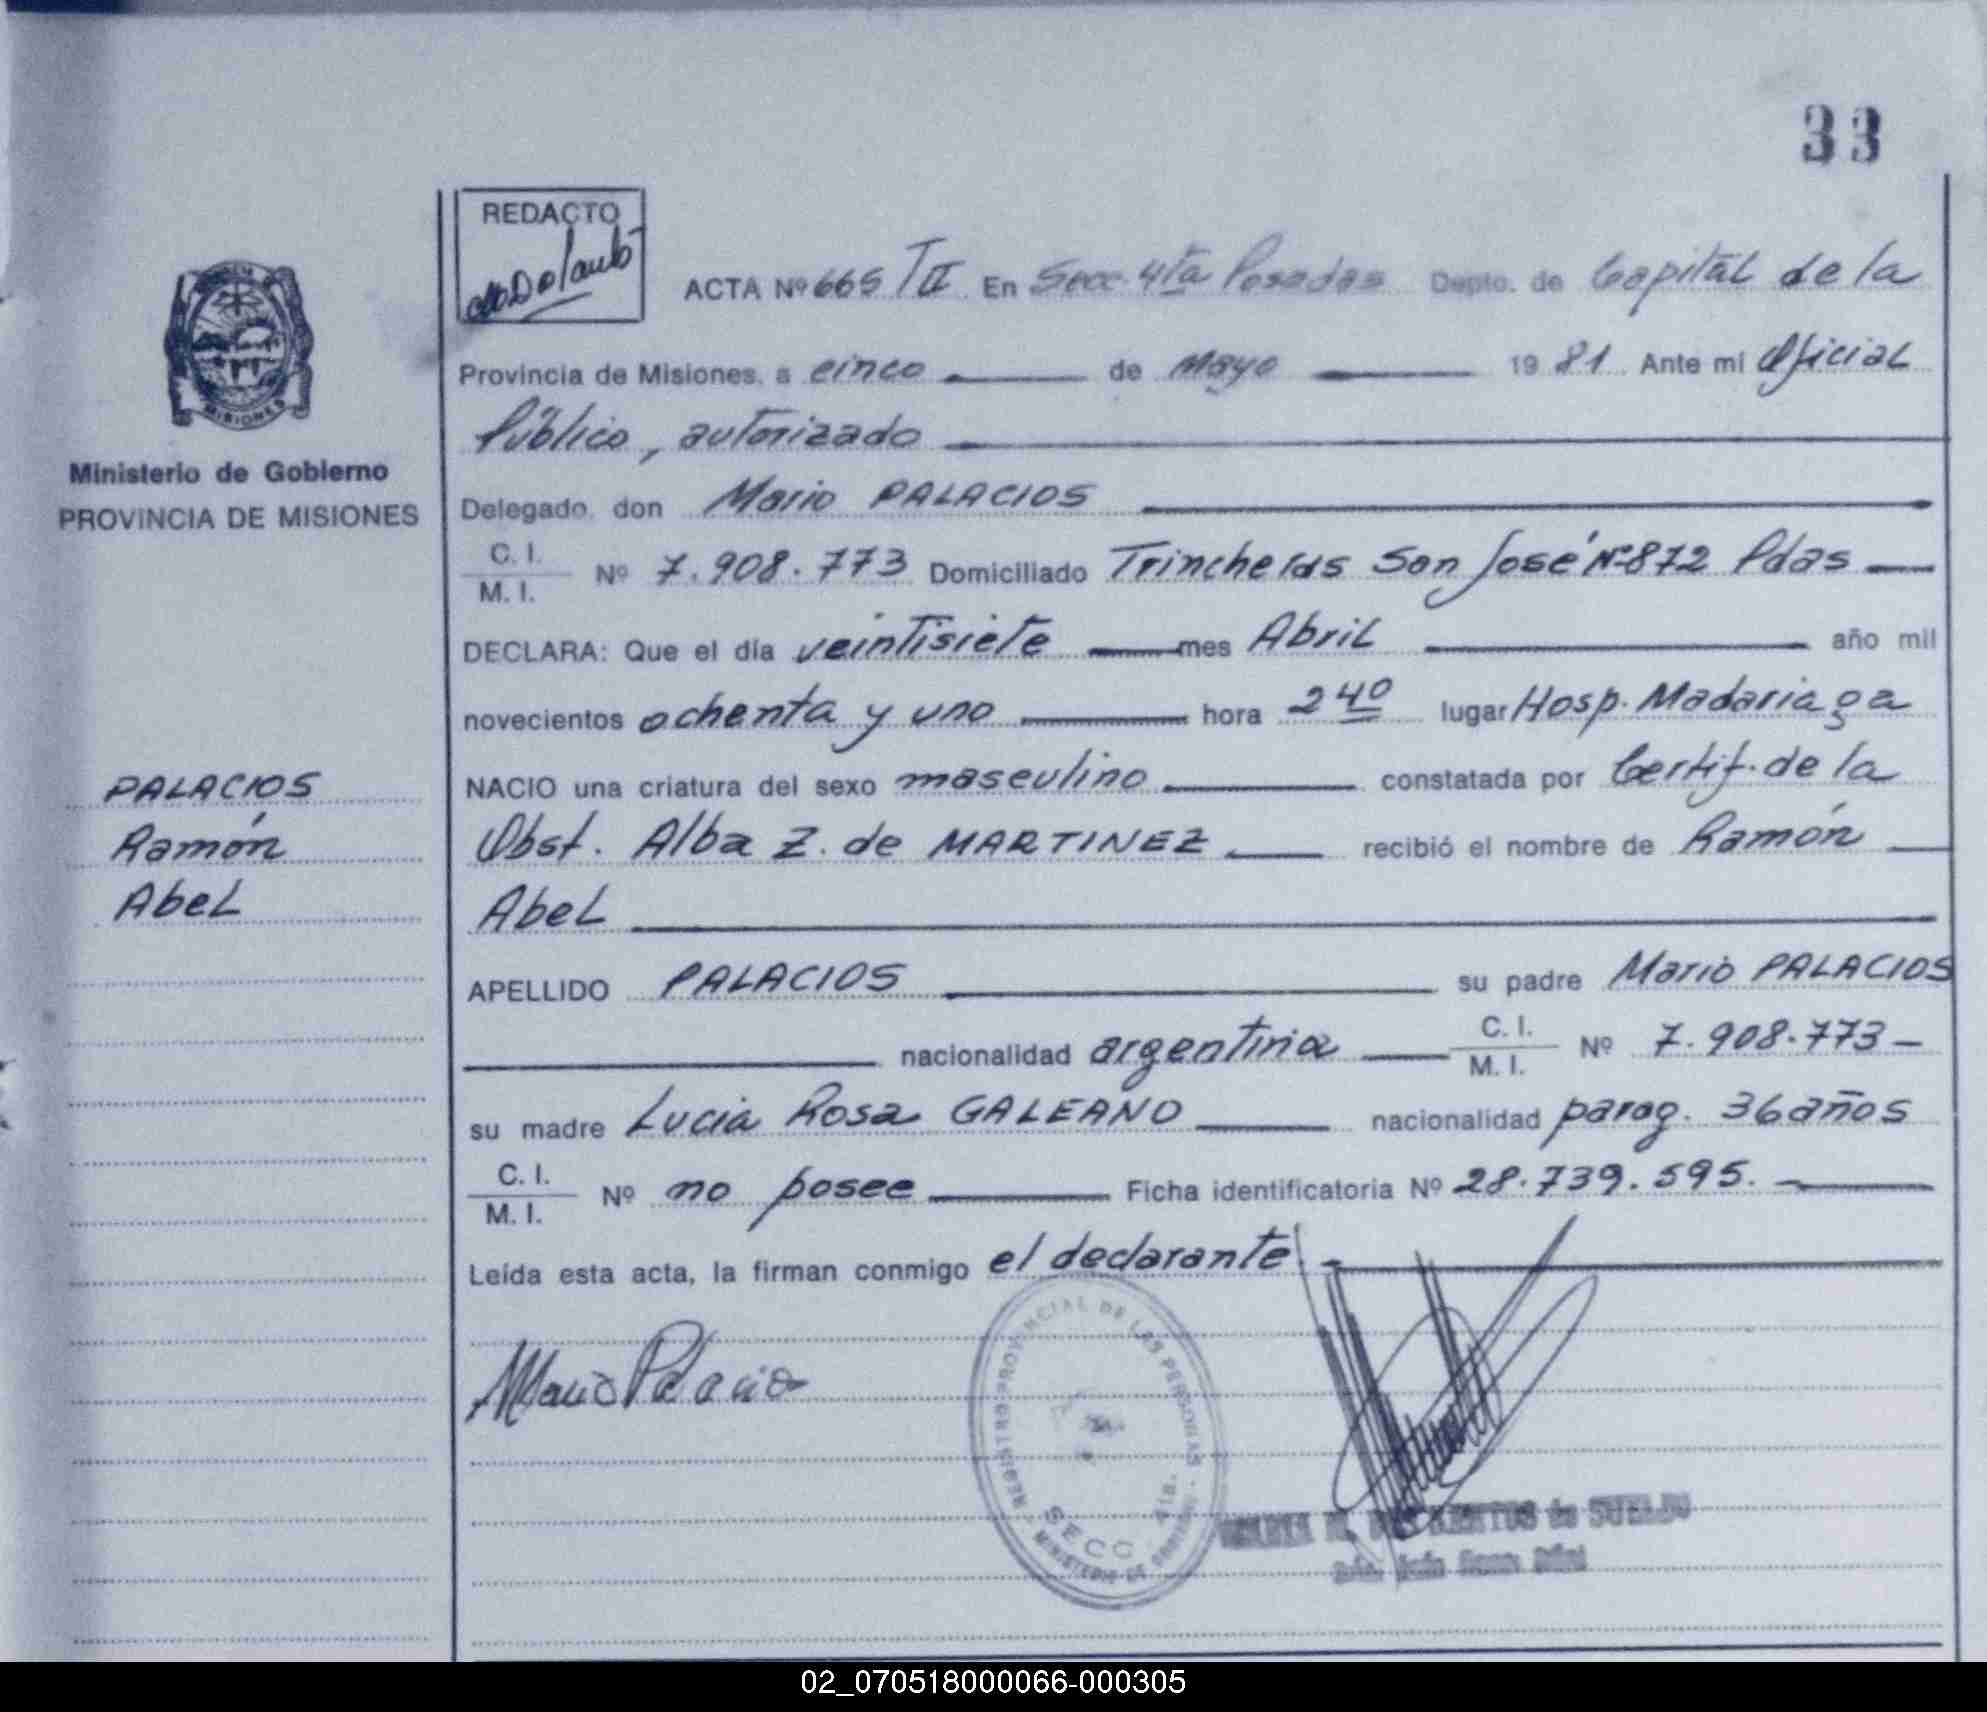 33
REDACTO
ACTA Nº 665 TII En Secc. 4ta Posadas Depto. de Capital de la
Provincia de Misiones, a cinco de Mayo 1981 Ante mi Oficial
Público, autorizado
Ministerio de Gobierno
PROVINCIA DE MISIONES
Delegado, don Mario PALACIOS
C. I.
M. I.
Nº 7.908.773 Domiciliado Trincheras San José Nº 872 Pdas
DECLARA: Que el día veintisiete mes Abril año mil
novecientos ochenta y uno hora 2 40 lugar Hosp. Madariaga
NACIO una criatura del sexo masculino constatada por Certif. de la
Obst. Alba Z. de MARTINEZ recibió el nombre de Ramón
Abel
PALACIOS
Ramón
Abel
APELLIDO PALACIOS su padre Mario PALACIOS
nacionalidad argentina C. I.
M. I.
Nº 7.908.773
su madre Lucia Rosa GALEANO nacionalidad parag. 36 años
C. I.
M. I.
Nº no posee Ficha identificatoria Nº 28.739.595.
Leída esta acta, la firman conmigo el declarante
Mario Palacio
REGISTRO PROVINCIAL DE LAS PERSONAS
SECC 4ta.
MINISTERIO DE GOBIERNO
de SUELDO
02_070518000066-000305